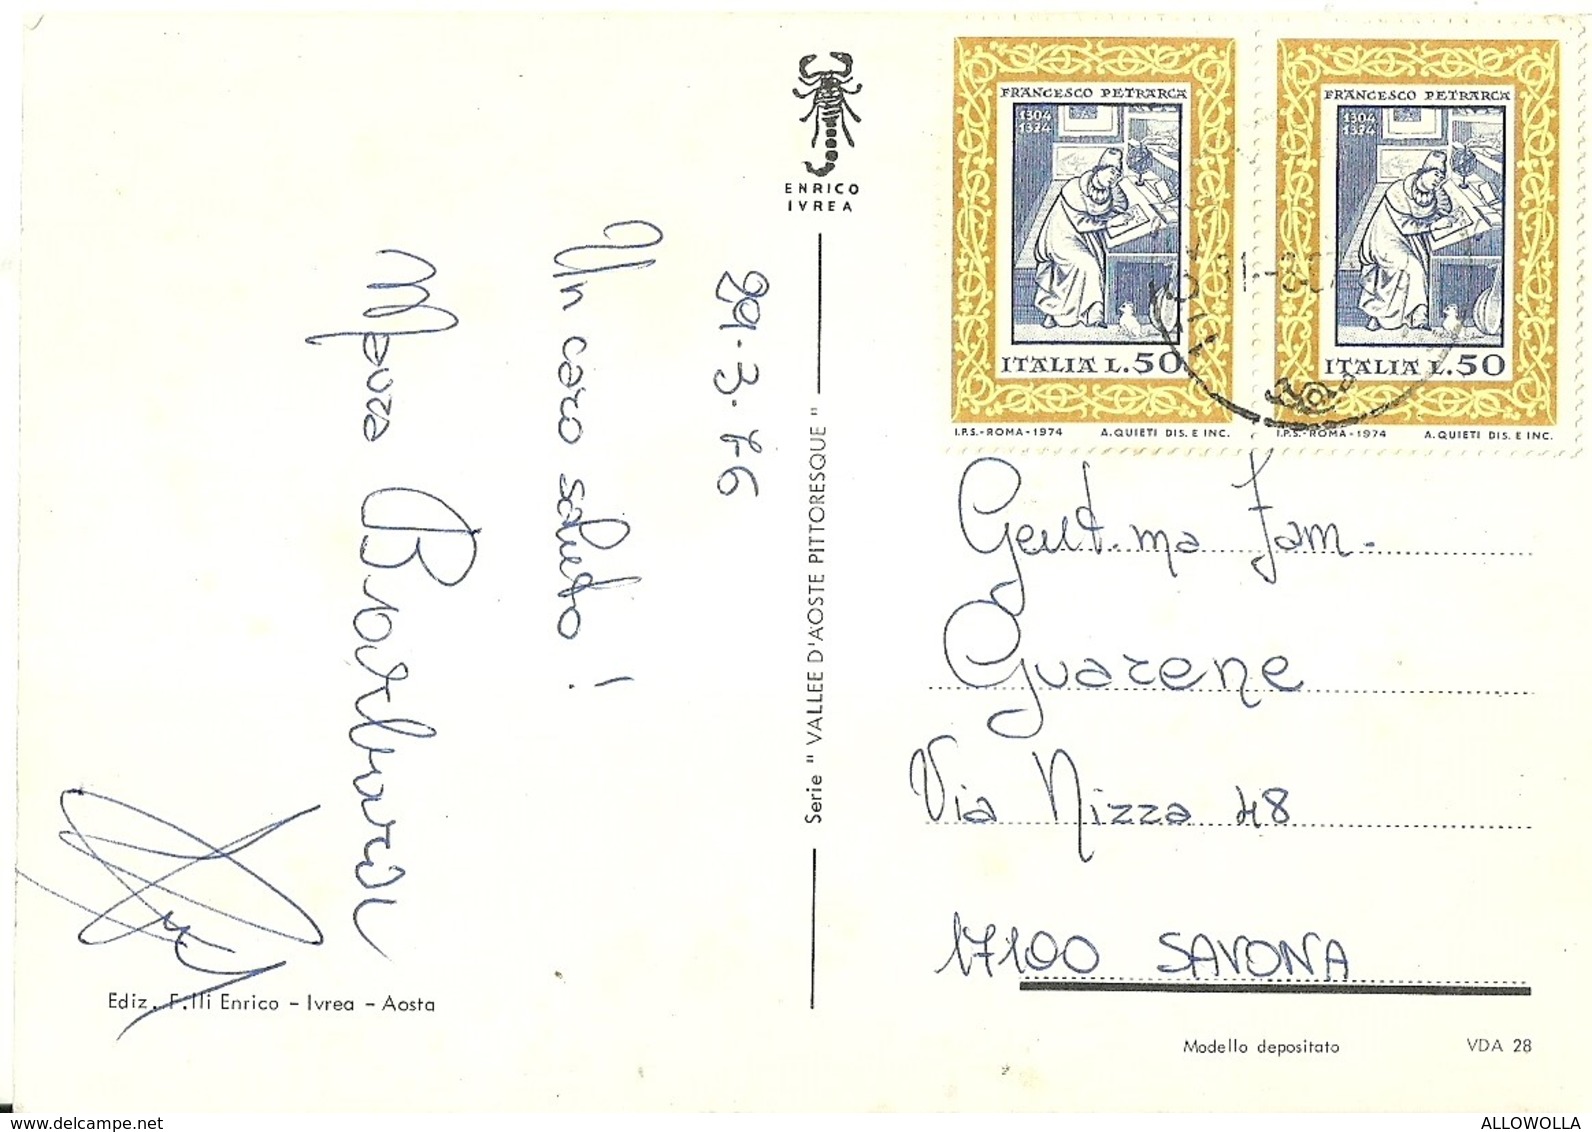 ENRICO
IVREA
29.3.76
Un caro saluto!
Serie " VALLEE D'AOSTE PITTORESQUE "
Ediz. F.lli Enrico - Ivrea - Aosta
FRANCESCO PETRARCA
1304
1374
ITALIA L.50
I.P.S.-ROMA-1974 A.QUIETI DIS. E INC.
FRANCESCO PETRARCA
1304
1374
ITALIA L.50
I.P.S.-ROMA-1974 A.QUIETI DIS. E INC.
Gent.ma Fam.
Guarene
Via Nizza 48
17100 SAVONA
Modello depositato VDA 28
www.delcampe.net
ALLOWOLLA